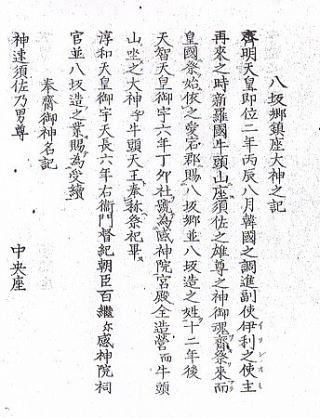 八坂郷鎮座大神之記
齊明天皇即位二年丙辰八月韓國之調進副使伊利之使主イリシオミ
再来之時新羅國牛頭山座須佐之雄尊之神御魂齋祭来而
皇國祭始依之愛宕郡賜八坂郷並八坂造之姓十二年後
天智天皇御宇六年丁卯社號為感神院宮殿全造營而牛頭
山坐之大神乎牛頭天王奉称祭祀畢
淳和天皇御宇天長六年右衛門督紀朝臣百継尓感神院祠
官並八坂造之業賜為受續
奉齋御神名記
神速須佐乃男尊 中央座